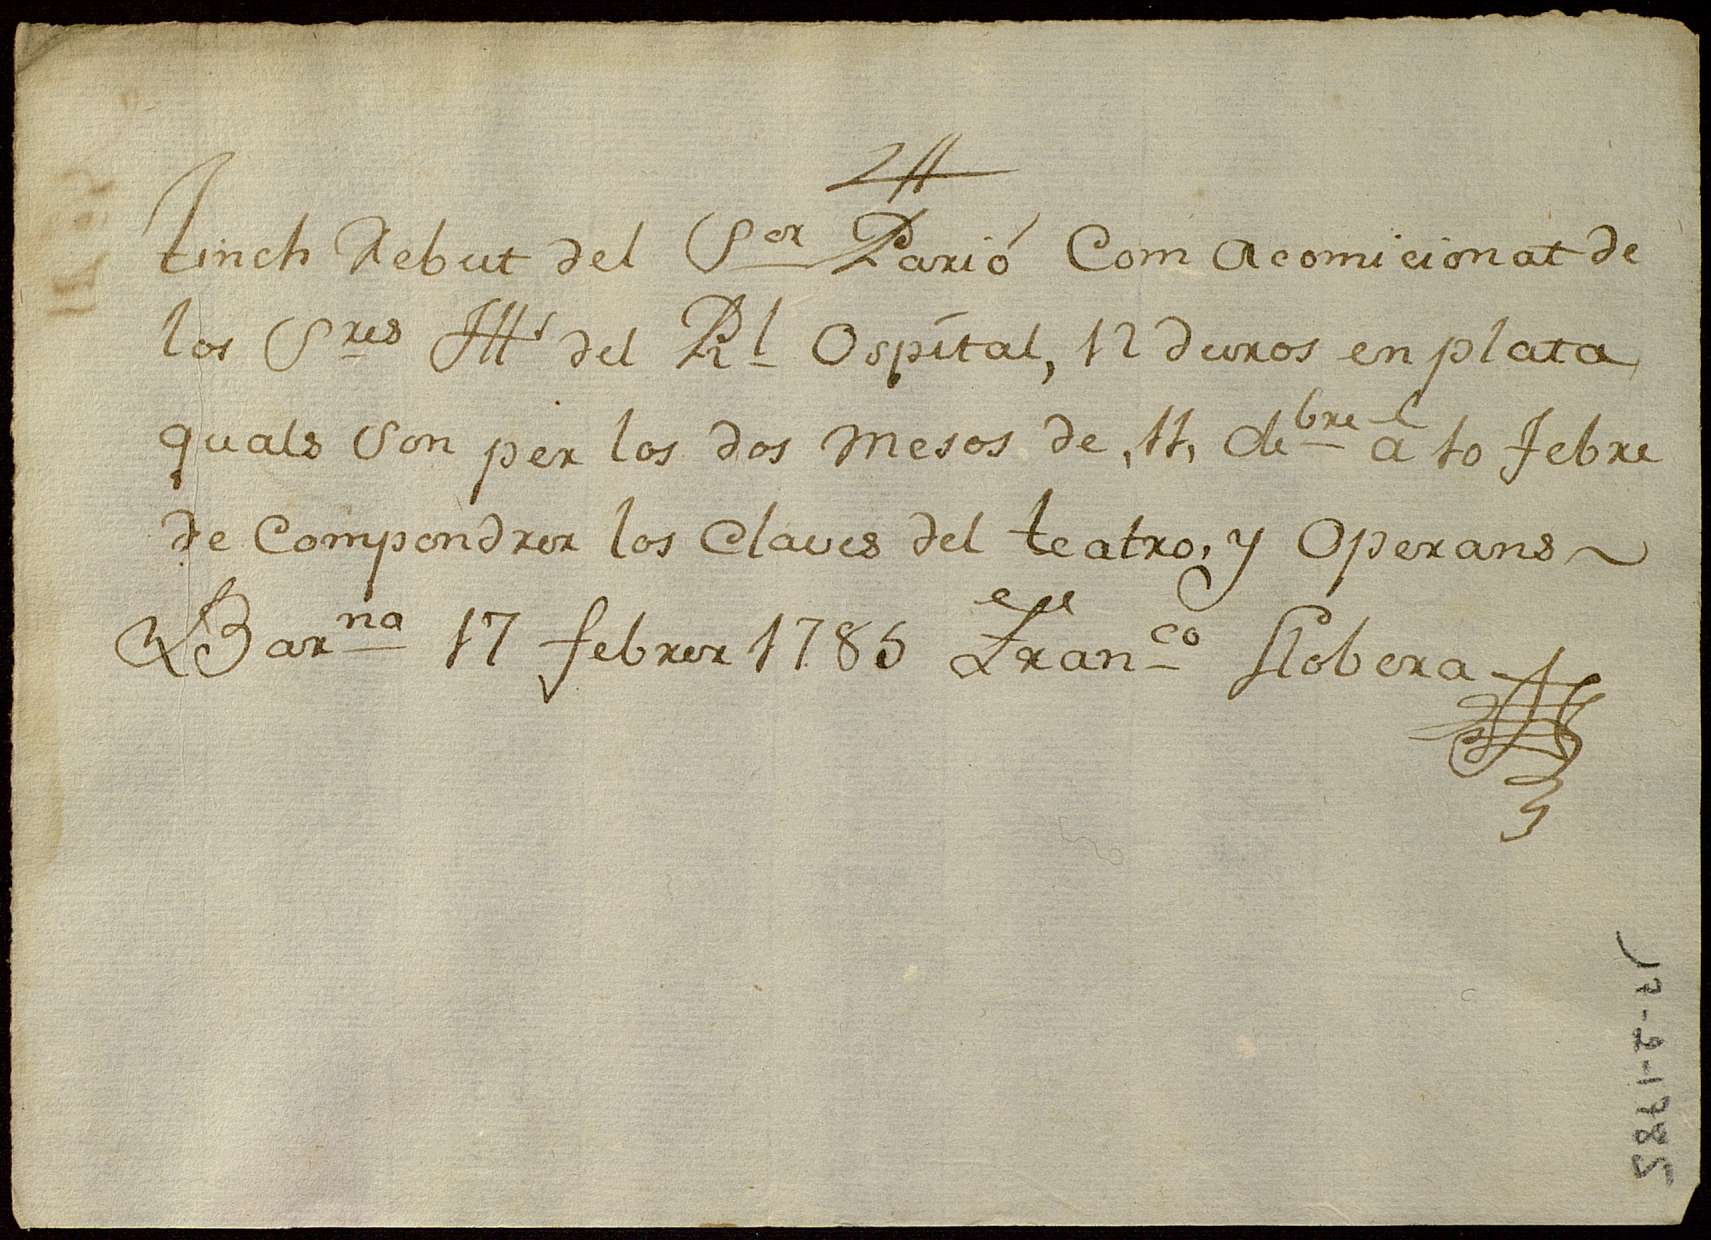 Tinch Rebut del Sor Parió Com Acomicionat de
los Sres Illes del Rl Ospital, 12 duros en plata,
quals Son per los dos Mesos de ,11, debre á 10 Febre
de Compondrer los Claves del teatro, y Operans ~
Barna 17 febrer 1785 Franco Llobera
17-2-1785